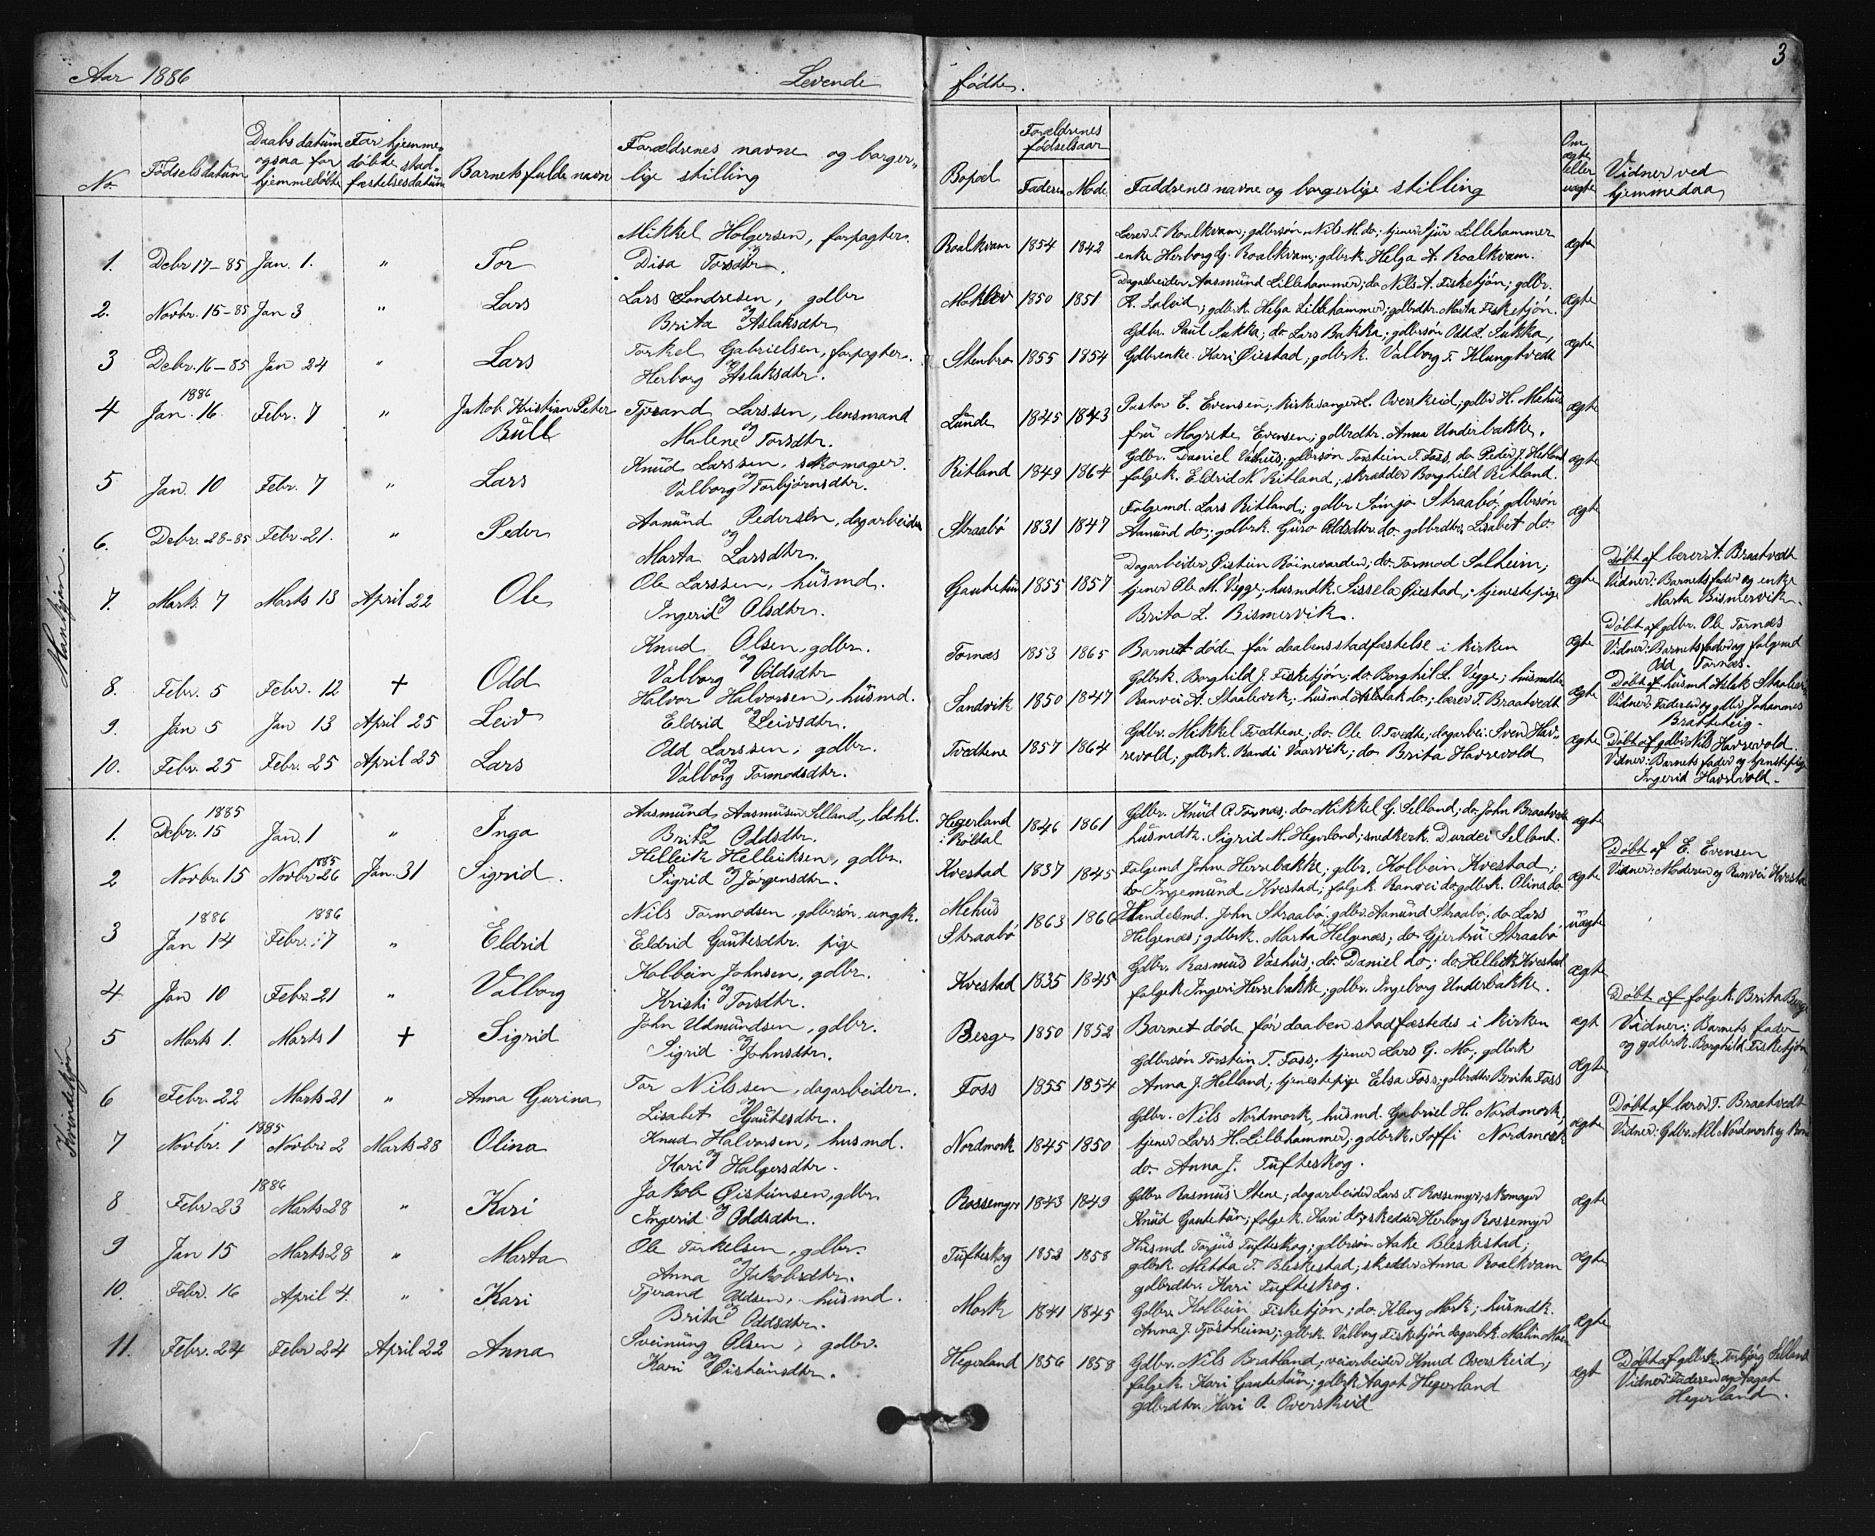 3
Aar 1886 Levende fødte.
No Fødselsdatum Daabsdatum ogsaa for hjemmedøbte For hjemmedøbte stadfæstelsesdatum Barnets fulde navn Forældrenes navne og borgerlige stilling Bopæl Forældrenes fødselsaar Faderen Mode Faddrenes navne og borgerlige stilling Om ægte eller uægte Vidner ved hjemmedaa
Mankjøn.
Mikkel Holgersen, forpagter.
1. Debr 17-85 Jan. 1. " Tor og Disa Torsdtr. Roalkvam 1854 1842 Lærer T. Roalkvam; gdbrsøn Nils M. do; tjener Sjur Lillehammer
enke Herborg G. Roalkvam; gdbrk. Helga A. Roalkvam. ægte
Lars Sondresen, gdbr
2. Novbr. 15-85 Jan 3 " Lars og Brita Aslaksdtr 1850 1851 Dagarbeider Aasmund Lillehammer; do Nils A. Fisketjøn; gdbr.
Helga Lillehammer; gdbrdtr. Marta Fisketjøn. ægte
Torkel Gabrielsen, forpagter.
3 Debr. 16-85 Jan 24 " Lars og Herborg Aslaksdtr. Stenbro 1855 1854 Gdbr. Paul Sukka; do Lars Bakka; gdbrsøn Odd L. Sukka,
Gdbrenke. Kari Øiestad; gdbrk. Valborg T. Klungtvedt ægte
1886
4 Jan. 16. Febr. 7 " Jakob Kristian Peter Bull Tjerand Larssen, lensmand
og Malene Torsdtr. Lunde 1845 1843 Pastor E. Evensen; kirkesanger L. Overskeid; gdbr H. Mehus
fru Magrete Evensen; gdbrdtr. Anna Underbakke. ægte
Knud Larssen, skomager.
5 Jan. 10 Febr. 7 " Lars og Valborg Torbjørnsdtr. Ritland 1849 1864 Gdbr. Daniel Vashus; gdbrsøn Torstein T. Foss, do Peder J. Helland
folgek. Eldrid N. Ritland; skrædder Borghild Ritland. ægte
Aamund Pedersen, dagarbeider
6. Debr. 28-85 Febr. 21. " Peder og Marta Larsdtr. Straabø 1831 1847 Folgemd. Lars Ritland; gdbr Straabø, gdbrsøn
Aamund do; gdbrk. Guro Oldsdtr. do gdbrdtr. Lisabet do ægte
Ole Larssen, husmd.
7. Marts 7 Marts 13 April 22 Ole og Ingerid Olsdtr. Gautetun 1855 1857 Dagarbeider Øistein Roinevarden; do. Tormod Solheim;
tjener Ole M. Vegge; husmdk. Sissela Øiestad; tjenestepige
Brita L. Bismervik. ægte Døbt af lærer T. Braatvedt
Vidner: Barnets fader og enke
Marta Bismervik.
Knud Olsen, gdbr.
8. Febr. 5 Febr. 12 + Odd og Valborg Oddsdtr Tornæs 1853 1865 Barnet døde før daabens stadfæstelse i kirken ægte Døbt af gdbr. Ole Tornæs
Vidner: Barnets fader og folgemd
Odd Tornæs.
Halvor Halvorsen, husmd.
9. Jan 5 Jan 13 April 25 Leiv og Eldrid Leivsdtr. Sandvik 1850 1847 Gdbrk. Borghild J. Fisketjøn; do Borghil L. Vegge; husmdk
Ranvei A. Staalevik; husmd Aslak do; lærer T. Braatvedt ægte Døbt af husmd Aslak
Vidner: Faderen og gdbr Johannes
Bratteteig.
Odd Larssen, gdbr.
10. Febr. 25 Febr. 25 April 25 Lars og Valborg Tormodsdtr. Tvedtene 1857 1864 Gdbr. Mikkel Tvedtene; do Ole O. Tvedte; dagarbei. Sven Havrevold; gdbrk. Randi Vaarvik; do Brita Havrevold ægte Døbt af gdbr Nils Havrevold.
Vidner: Barnets fader og tjenstepige
Ingerid Havrevold.
Kvindekjøn
1885
1. Debr. 15 Jan. 1 " Inga Aasmund Aasmundsen Selland,
og Brita Oddsdtr. Hegerland
Roldal 1846 1861 Gdbr. Knud O. Tornæs; do Mikkel G. Selland; do. John Braatveit
husmdk. Sigrid M. Hegerland; smedkerk Dordei Selland. ægte
1885
2 Novbr. 15 Novbr 26 Jan. 31 Sigrid. Helleik Helleiksen, gdbr.
og Sigrid Jørgensdtr. Kvestad 1837 1845 Folgemd John Herrebakke; gdbr. Kolbein Kvestad;
do Ingemund Kvestad; folgek Ranvei do; gdbrk. Olina do ægte Døbt af E. Evensen
Vidner: Moderen og Ranvei Kvestad
1886 1886
3 Jan 14 Febr. 7 " Eldrid Nils Tormodsen, gdbrsøn. ungk.
Eldrid Gautesdtr. pige Mehus
Straabø 1863 1866 Handelsmd. John Straabø; gdbr Aamund Straabø; do Lars
Helgenæs; gdbrk. Marta Helgenæs; do Gjertru Straabø uægte
4 Jan 10 Febr. 21 " Valborg Kolbein Johnsen, gdbr.
og Kristi Torsdtr. Kvestad 1835 1845 Gdbr. Rasmus Vashus; do. Daniel do; do Helleik Kvestad
folgek Ingeri Herrebakke; gdbr. Ingeborg Underbakke. ægte
5 Marts 1. Marts 1 + Sigrid John Udmundsen, gdbr.
og Sigrid Johnsdtr. Berge 1850 1852 Barnet døde før daaben stadfæstedes i kirken ægt Døbt af folgek. Brita Berge
Vidner: Barnets fader
og gdbrk. Borghild Fisketjøn
6 Febr. 22 Marts 21 " Anna Gurina Tor Nilssen, dagarbeider.
og Lisabet Gautesdtr. Foss 1855 1854 Gdbrsøn Torstein T. Foss; tjener Lars G. Mo; gdbrk
Anna J. Helland; tjenestepige Elsa Foss; gdbrdtr Brita Foss ægte
1885
7 Novbr. 1 Novbr 2 Marts 28 Olina Knud Halvorsen, husmd.
og Kari Halgersdtr. Nordmork 1845 1850 Gdbr. Nils Nordmork, husmd. Gabriel H. Nordmork,
tjener Lars H. Lillehammer; gdbrk. Soffi Nordmork
do. Anna J. Tufteskog. ægte Døbt af lærer T. Braatvedt
Vidner: Gdbr. Nil Nordmork og
1886
8 Febr 23 Marts 28 " Kari Jakob Øisteinsen, gdbr
og Ingerid Oddsdtr. Rossemyr 1843 1849 Gdbr Rasmus Stene; dagarbeider Lars T. Rossemyr; skomager
Knud Gautetun; folgek. Kari do; skedder Herborg Rossemyr ægte
9 Jan 15 Marts 28 " Marta Ole Torkelsen, gdbr.
og Anna Jakobsdtr. Tufteskog 1852 1858 Husmd Torjus Tufteskog; gdbrsøn Aake Bleskestad;
gdbrk. Mitta T. Bleskestad; skedder Anna Roalkvam
gdbrdtr. Kari Tufteskog. ægte
10. Febr. 16 April 4. " Kari Tjerand Oddsen, husmd.
og Brita Oddsdtr. Mork 1841 1845 Gdbr. Kolbein Fisketjøn; do. Mork; husmdk.
Anna J. Tjostheim; gdbrk. Valborg Fisketjøn dagarbk. Malin Moe ægte
11. Febr. 24 Febr 24 April 22 Anna Sveinung Olsen, gdbr.
og Kari Øisteinsdtr. Hegerland 1856 1858 Gdbr. Nils Bratland; veiarbeider Knud Overskeid;
folgek. Kari Gautetun; gdbrk Aagot Hegerland
gdbrdtr. Kari O. Overskeid ægt Døbt af gdbrk. Torbjørg Selland
Vidner: Faderen og Aagot
Hegerland.